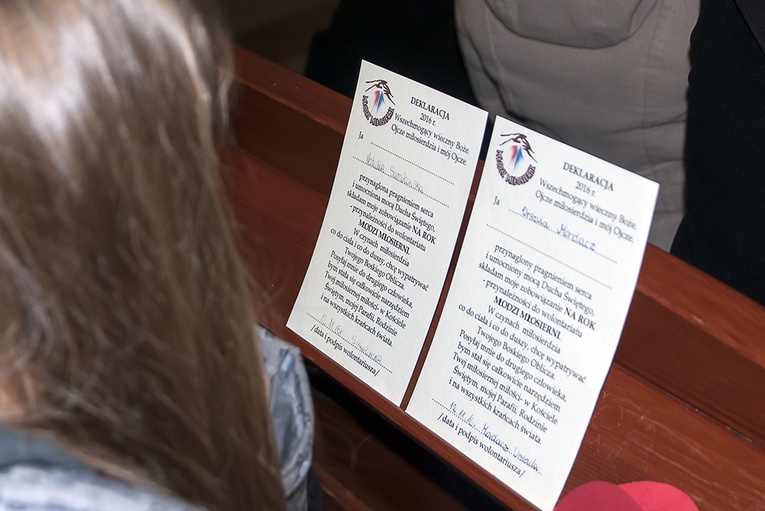 DEKLARACJA
2016 r.
Wszechmogący wieczny Boże.
Ojcze miłosierdzia i mój Ojcze.
Ja
przynaglona pragnieniem serca
i umocniona mocą Ducha Świętego,
składam moje zobowiązanie NA ROK
- przynależności do wolontariatu
MODZI MŁOSIERNI.
W czynach miłosierdzia
co do ciała i co do duszy, chcę wypatrywać
Twojego Boskiego Oblicza.
Posyłaj mnie do drugiego człowieka,
bym stała się całkowicie narzędziem
Twej miłosiernej miłości- w Kościele
Świętym, mojej Parafii, Rodzinie
i na wszystkich krańcach świata.
/data i podpis wolontariusza/
DEKLARACJA
2016 r.
Wszechmogący wieczny Boże.
Ojcze miłosierdzia i mój Ojcze.
Ja Urszula Mordacz
przynaglony pragnieniem serca
i umocniony mocą Ducha Świętego,
składam moje zobowiązanie NA ROK
- przynależności do wolontariatu
MODZI MŁOSIERNI.
W czynach miłosierdzia
co do ciała i co do duszy, chcę wypatrywać
Twojego Boskiego Oblicza.
Posyłaj mnie do drugiego człowieka,
bym stał się całkowicie narzędziem
Twej miłosiernej miłości- w Kościele
Świętym, mojej Parafii, Rodzinie
i na wszystkich krańcach świata
Mordacz Urszula
/data i podpis wolontariusza/